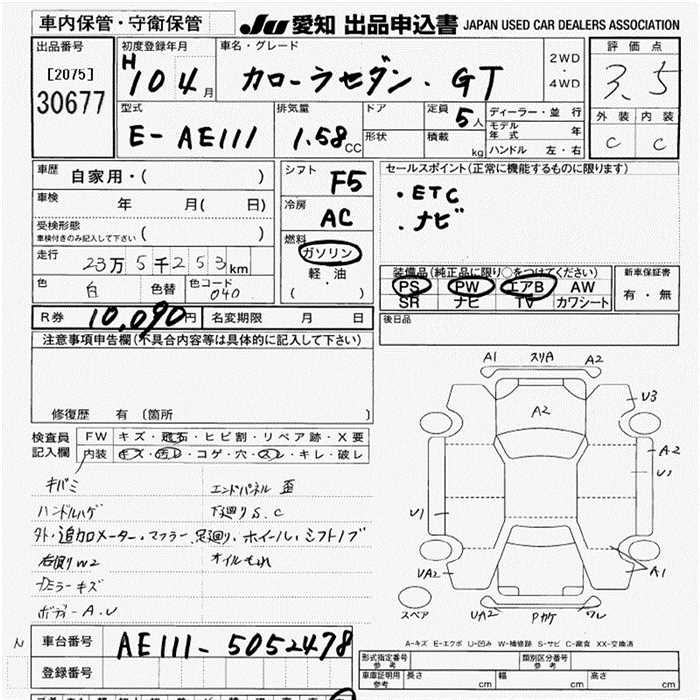 車内保管・守衛保管 JU 愛知 出品申込書 JAPAN USED CAR DEALERS ASSOCIATION
出品番号 初度登録年月 車名・グレード 2WD・4WD 評価点
[2075] 30677 H 10 4月 カローラセダン・GT 3.5
型式 排気量 ドア 定員 5人 ディーラー・並行 外装 内装
E-AE111 1.58CC 形状 積載 kg モデル年式 年 C C
ハンドル 左・右
車歴 自家用・( ) シフト F5 セールスポイント(正常に機能するものに限ります)
車検 年 月( 日) 冷房 AC ・ETC
受検形態 車検付きのみ記入して下さい ( ) 燃料 ガソリン ・ナビ
走行 23万5千253km 軽・油 装備品(純正品に限り○をつけてください) 新車保証書
色 白 色替 色コード 040 ( ) PS PW エアB AW 有・無
SR ナビ TV カワシート
R券 10,090円 名変期限 月 日 後日品
注意事項申告欄(不具合内容等は具体的に記入して下さい)
修復歴 有 (箇所 )
検査員記入欄 FW キズ・飛石・ヒビ割・リペア跡・X要
内装 キズ・汚レ・コゲ・穴・スレ・キレ・破レ
キバミ エンドパネル 歪
ハンドルハゲ 下廻りS.C
外・追加メーター・マフラー・足廻り・ホイール・シフトノブ
右廻りW2 オイルもれ
ミラーキズ
ボディーA.U
A1 スリA A2
A2
U3
A2
U1
A1
UA2
UA2 Pカケ ワレ
スペア
A-キズ E-エクボ U-凹み W-補修跡 S-サビ C-腐食 XX-交換済
N 車台番号 AE111-5052478
登録番号
形式指定番号 参考 類別区分番号 参考
車庫証明用 参考 長さ cm 幅 cm 高さ cm